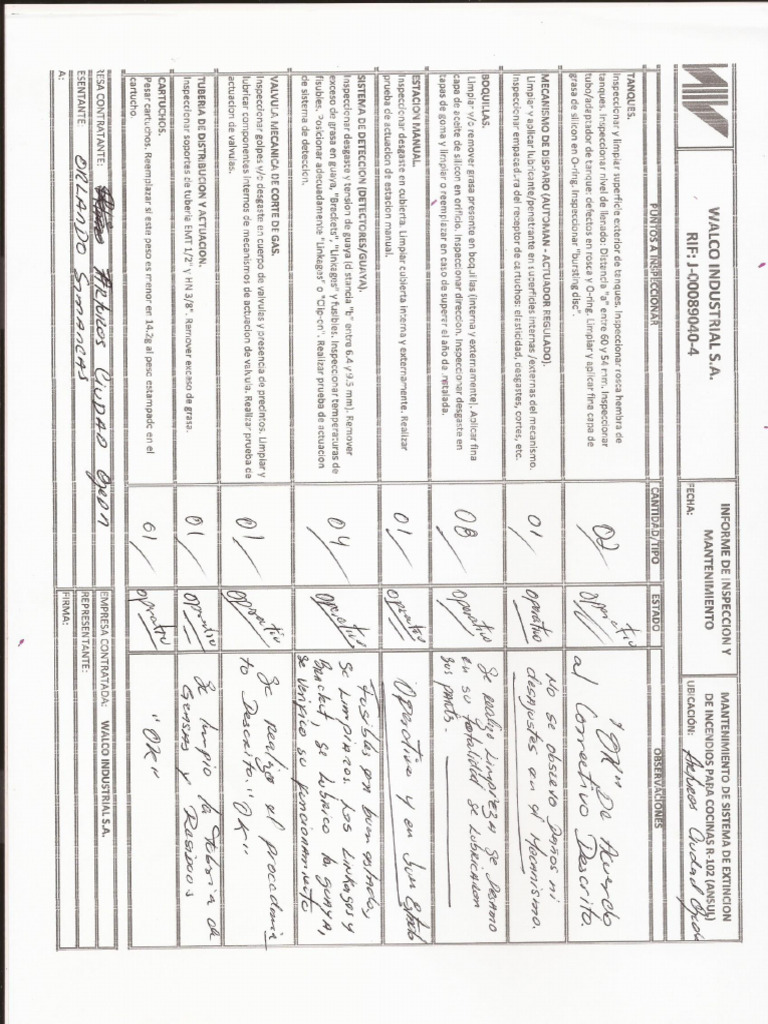 WALCO INDUSTRIAL S.A.
RIF: J-00089040-4
INFORME DE INSPECCION Y
MANTENIMIENTO
FECHA:
MANTENIMIENTO DE SISTEMA DE EXTINCION
DE INCENDIOS PARA COCINAS R-102 (ANSUL)
UBICACIÓN: Ciudad Ojeda
PUNTOS A INSPECCIONAR
CANTIDAD/TIPO
ESTADO
OBSERVACIONES
TANQUES.
Inspeccionar y limpiar superficie exterior de tanques. Inspeccionar rosca hembra de
tanques. Inspeccionar nivel de llenado: Distancia "a" entre 60 y 54 mm. Inspeccionar
tubo/adaptador de tanque: defectos en rosca y O-ring. Limpiar y aplicar fina capa de
grasa de silicon en O-ring. Inspeccionar "bursting disc".
02/
Operativo
"OK" De Acuerdo
al Correctivo Descrito.
MECANISMO DE DISPARO (AUTOMAN - ACTUADOR REGULADO).
Limpiar y aplicar lubricante/penetrante en superficies internas/externas del mecanismo.
Inspeccionar empacadura del receptor de cartuchos: elasticidad, desgastes, cortes, etc.
01/
Operativo
No se observo Daños ni
desajustes en el Mecanismo.
BOQUILLAS.
Limpiar y/o remover grasa presente en boquillas (interna y externamente). Aplicar fina
capa de aceite de silicon en orificio. Inspeccionar direccion. Inspeccionar desgaste en
tapas de goma y limpiar o reemplazar en caso de superar el año de instalada.
08/
Operativo
Se realizo Limpieza se Desarmo
en su totalidad se Lubricaron
sus partes.
ESTACION MANUAL.
Inspeccionar desgaste en cubierta. Limpiar cubierta interna y externamente. Realizar
prueba de actuacion de estacion manual.
01/
Operativo
Operativa y en buen Estado
SISTEMA DE DETECCION (DETECTORES/GUAYA).
Inspeccionar desgaste y tension de guaya (distancia "b" entre 6.4 y 9.5 mm). Remover
exceso de grasa en guaya, "Brackets", "Linkages" y fusibles. Inspeccionar temperaturas de
fisibles. Posicionar adecuadamente "Linkages" o "Clip-on". Realizar prueba de actuacion
de sistema de deteccion.
04/
Operativo
Fusibles en buen estado,
se Limpiaron Los Linkages y
Bracket, se Lubrico la guaya,
se Verifico su funcionamiento
VALVULA MECANICA DE CORTE DE GAS.
Inspeccionar golpes y/o desgaste en cuerpo de valvulas y presencia de precintos. Limpiar y
lubricar componentes internos de mecanismos de actuacion de valvula. Realizar prueba de
actuacion de valvulas.
01/
Operativo
Se realizo el procedimien
to Descrito. "OK"
TUBERIA DE DISTRIBUCION Y ACTUACION.
Inspeccionar soportes de tuberia EMT 1/2" y HN 3/8". Remover exceso de grasa.
01/
Operativo
Se limpio la Tuberia de
Grasas y Residuos
CARTUCHOS.
Pesar cartuchos. Reemplazar si este peso es menor en 14.2g al peso estampado en el
cartucho.
01/
Operativo
"OK"
RESA CONTRATANTE: Arturos Ciudad Ojeda
EMPRESA CONTRATADA: WALCO INDUSTRIAL S.A.
ESENTANTE: ORLANDO SIMANCAS
REPRESENTANTE:
A:
FIRMA: